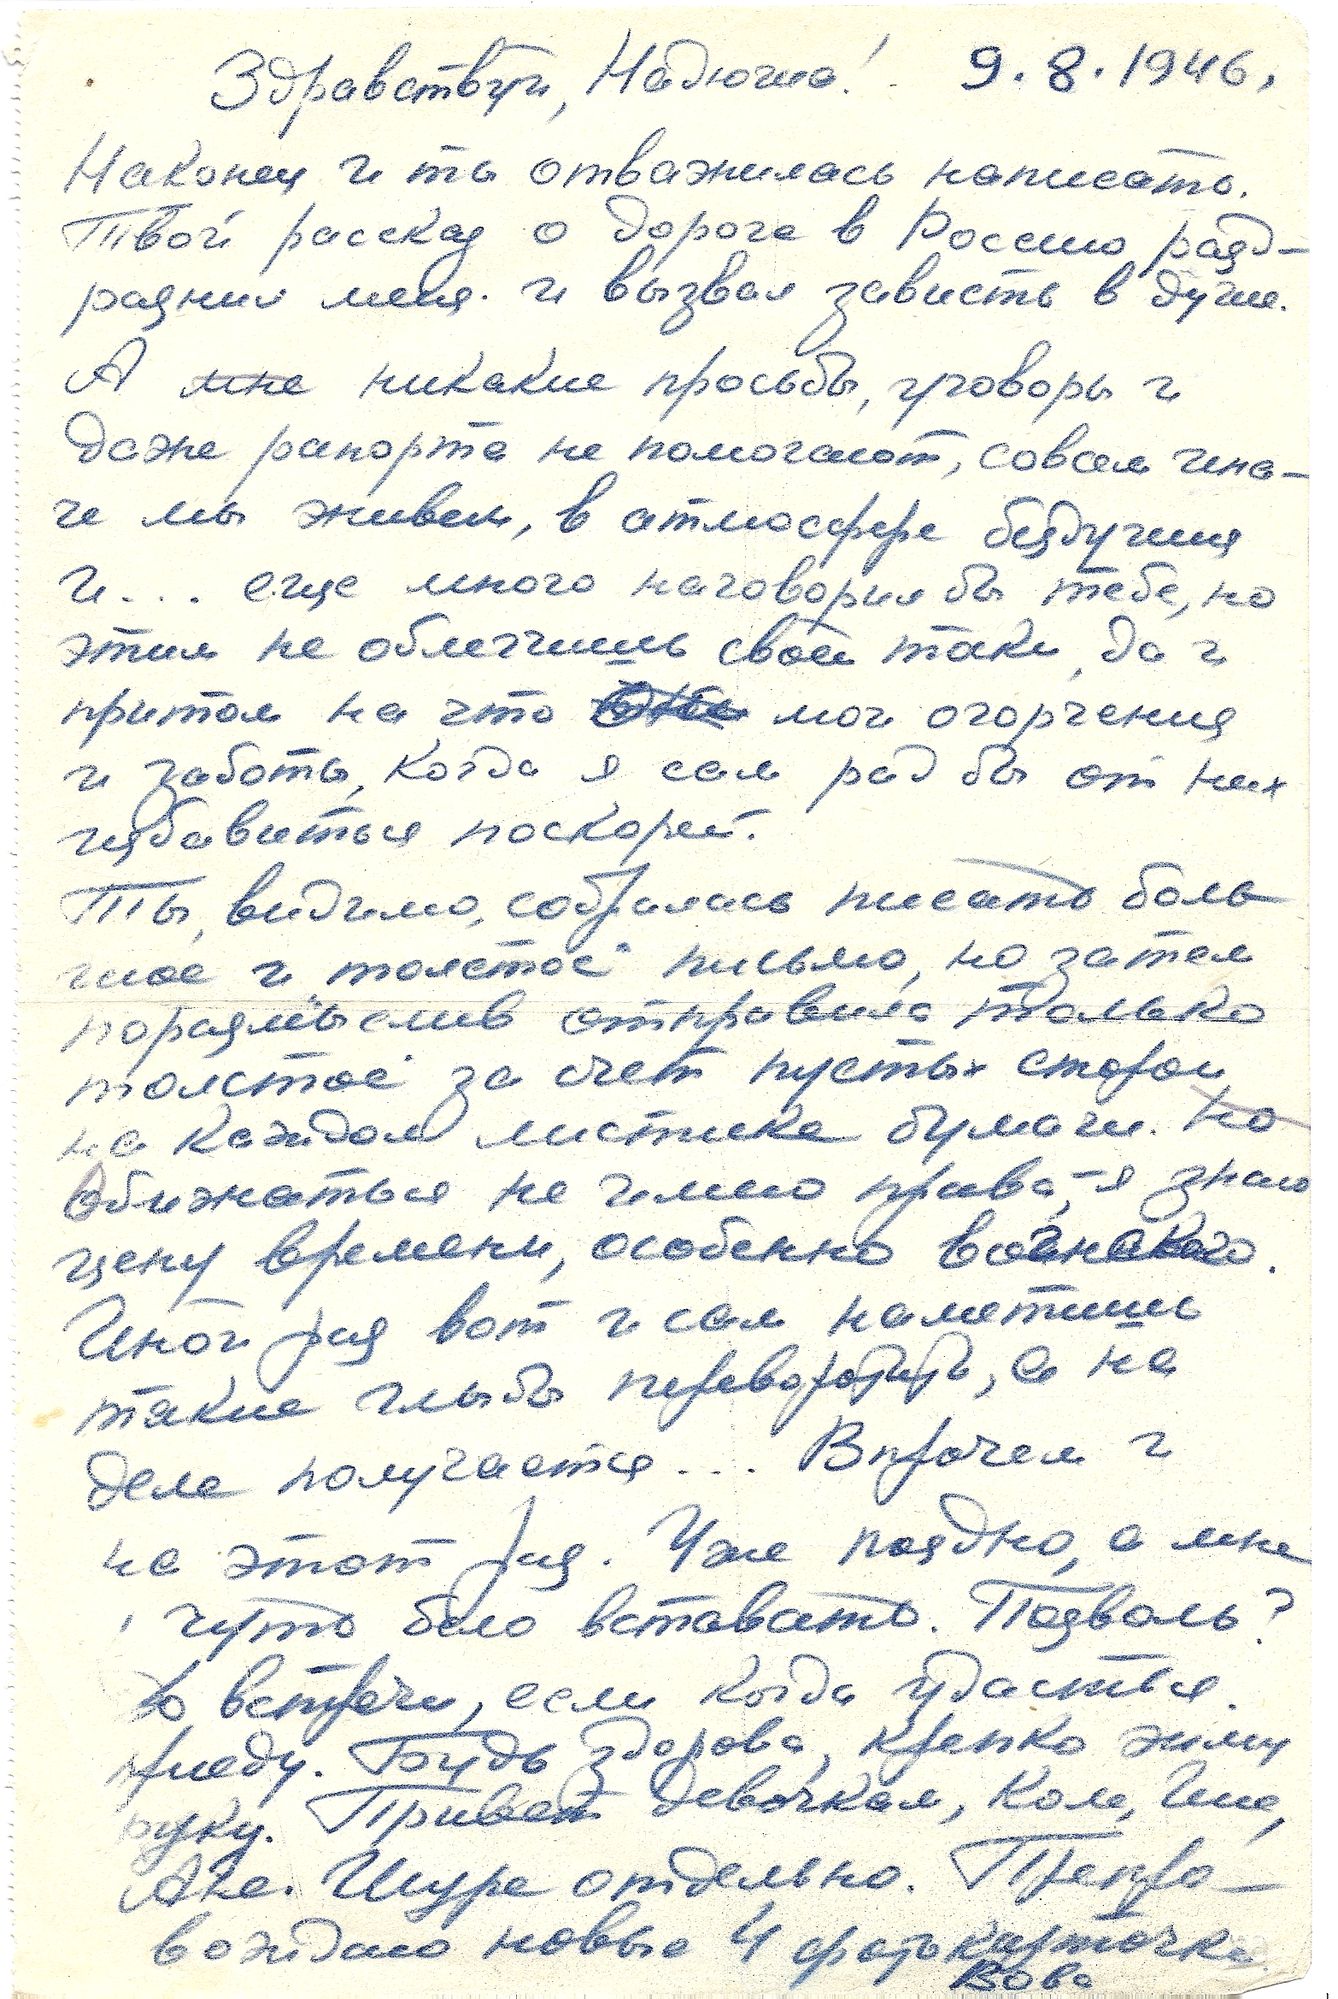 Здравствуй, Надюша! 9.8.1946,
Наконец и ты отважилась написать.
Твой рассказ о дороге в Россию разд-
разнил меня и вызвал зависть в душе.
А мне никакие просьбы, уговоры и
даже рапорта не помогают, совсем ина-
че мы живем, в атмосфере бездушия
и... еще много наговорил бы тебе, но
этим не облегчишь свой таки, да и
притом на что мои огорчения
и заботы, когда я сам рад бы от них
избавиться поскорей.
Ты, видимо, собралась писать боль
шое и "толстое" письмо, но затем
поразмыслив отправила только
"толстое" за счет пустых сторон
на каждом листике бумаги. Но
Обижаться не имею права, – я знаю
цену времени, особенно воинского.
Иной раз вот и сам наметишь
такие глыбы переворотить, а на
деле получается... Впрочем и
на этот раз. Уже поздно, а мне
чуть свет вставать. Позволь?
До встречи, если когда удастся
приеду. Будь здорова, крепко жму
руку. Привет девочкам, Коле, Ине,
Ане. Шуре отдельно. Препро-
вождаю новые 4 фотокарточки.
Вова